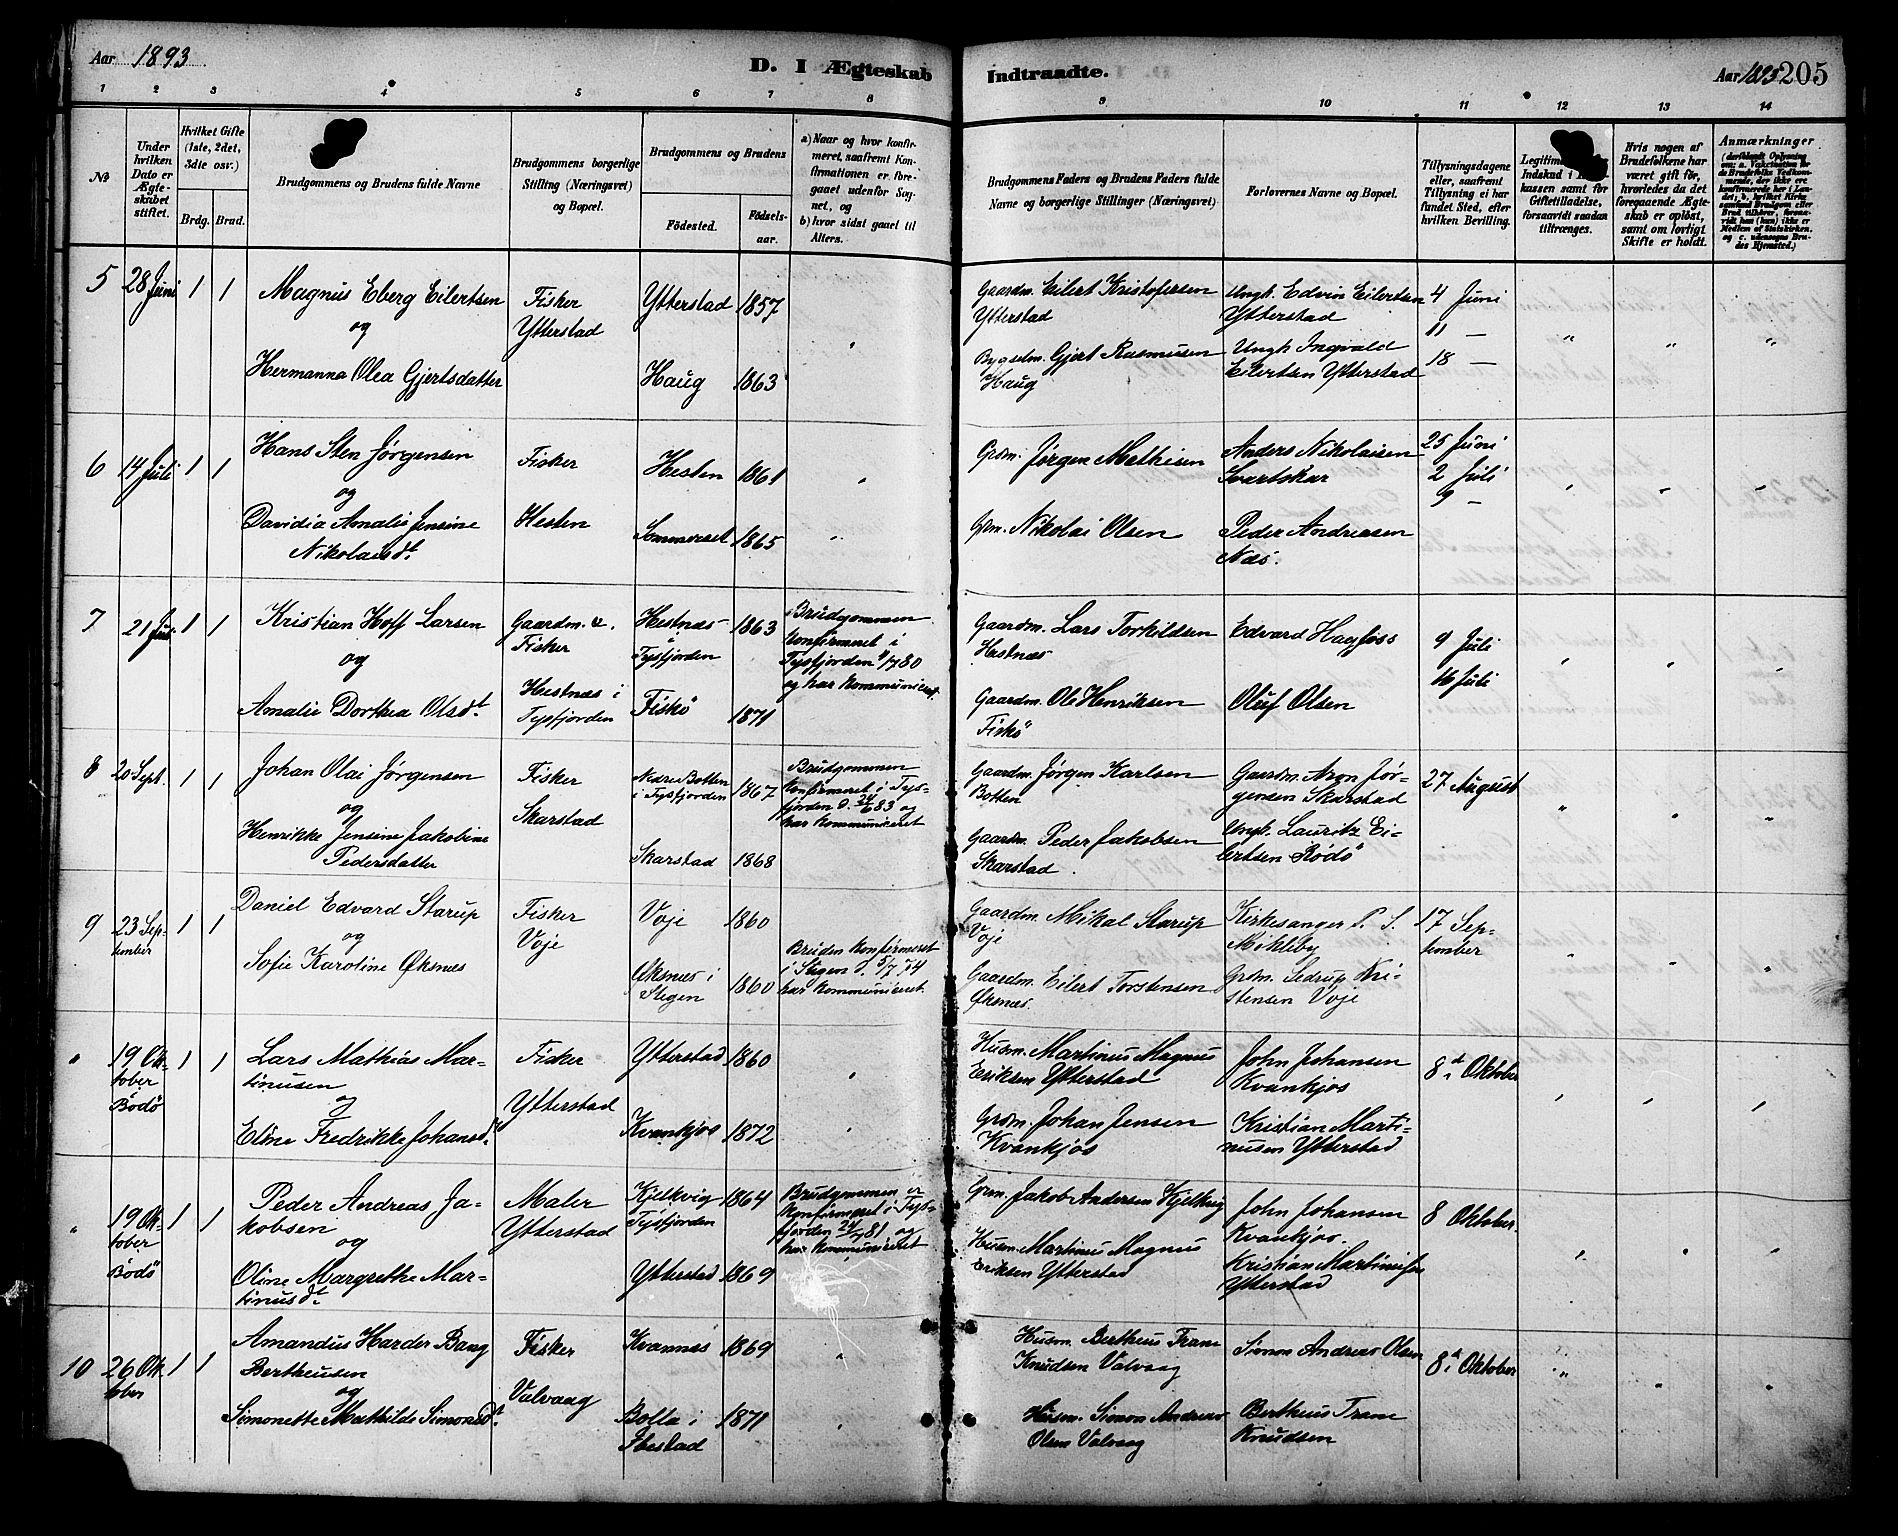 Aar 1893.
D. I Ægteskab
Indtraadte.
Aar 1893 205
1 2 3 4 5 6 7 8 9 10 11 12 13 14
№
Under
hvilken
Dato er
Ægte-
skabet
stiftet.
Hvilket Gifte
(1ste, 2det,
3die osv.)
Brdg. Brud.
Brudgommens og Brudens fulde Navne
Brudgommens borgerlige
Stilling (Næringsvei)
og Bopæl.
Brudgommens og Brudens
Födested.
Födsels-
aar.
a) Naar og hvor konfir-
meret, saafremt Kon-
firmationen er fore-
gaaet udenfor Sog-
net, og
b) hvor sidst gaaet til
Alters.
Brudgommens Faders og Brudens Faders fulde
Navne og borgerlige Stillinger (Næringsvei)
Forlovernes Navne og Bopæl.
Tillysningsdagene
eller, saafremt
Tillysning ei har
fundet Sted, efter
hvilken Bevilling.
Indskud i
kassen samt för
Giftetilladelse,
forsaavidt saadan
tiltrænges.
Hvis nogen af
Brudefolkene har
været gift för,
hvorledes da det
foregaaende Ægte-
skab er oplöst,
samt om lovligt
Skifte er holdt.
Anmærkninger
5 28 Juni 1 1
Magnus Eberg Eilertsen
og
Hermanna Olea Gjertsdatter
Fisker
Ytterstad
Ytterstad 1857
Haug 1863
Gaardm. Eilert Kristofersen
Ytterstad
Bygselm. Gjert Rasmusen
Haug
Ungk. Edvin Eilertsen
Ytterstad
Ungk. Ingvald
Eilertsen Ytterstad
4 Juni
11 —
18 —
6 14 Juli 1 1
Hans Sten Jørgensen
og
Davidia Amalie Jensine
Nikolaisdt.
Fisker
Hesten
Hesten 1861
Sommerset 1865
Grdm. Jørgen Mathisen
Grdm. Nikolai Olsen
Anders Nikolaisen
Svartskar
Peder Andreasen
Næs.
25 Juni
2 Juli
9 —
7 21 Juli 1 1
Kristian Hoff Larsen
og
Amalie Dorthea Olsdt.
Gaardm. &.
Fisker
Hestnæs i
Tysfjorden
Hestnæs
i
Tysfjorden 1863
Fiskö 1871
Brudgommen
konfirmeret i
Tysfjorden 11/7 80
og har kommuniceret.
Gaardm. Lars Torkildsen
Hestnæs
Gaardm. Ole Henriksen
Fiskö
Edvard Hagfoss
Oluf Olsen
9 Juli
16 Juli
8 20 Sept. 1 1
Johan Olai Jørgensen
og
Henrikke Jensine Jakobine
Pedersdatter
Fisker
Skarstad
Nedre Botten
i Tysfjorden 1867
Skarstad 1868
Brudgommen
konfirmeret i Tys-
fjorden d. 24/6 83 og
har kommuniceret
Gaardm. Jørgen Karlsen
Botten
Gaardm. Peder Jakobsen
Skarstad
Gaardm. Aron Jør-
gensen Skarstad
Ungk. Lauritz Ei-
lertsen Rödö
27 August
9 23 Sep-
tember 1 1
Daniel Edvard Starup
og
Sofie Karoline Øksnes
Fisker
Voje
Voje 1860
Øksnes i
Stegen 1860
Bruden konfirmeret
i Stegen d. 5/7 74
har kommuniceret.
Gaardm. Mikal Starup
Voje
Gaardm. Eilert Torstensen
Øksnes.
Kirkesanger P. S.
Mikkelby
Grdm. Sedrup Kri-
stensen Voje
17 Sep-
tember
" 19 Ok-
tober
Bodö 1 1
Lars Mathias Mar-
tinusen
og
Eline Fredrikke Johansdt.
Fisker
Ytterstad
Ytterstad 1860
Kvankjos 1872
Husm. Martinus Magnus
Eriksen Ytterstad
Grdm. Johan Jensen
Kvankjos
John Johansen
Kvankjos
Kristian Marti-
nusen Ytterstad
8de Oktober
" 19 Ok-
tober
Bodö 1 1
Peder Andreas Ja-
kobsen
og
Oline Margrethe Mar-
tinusdt.
Maler
Ytterstad
Kjelkvig
Tysfjorden 1864
Ytterstad 1869
Brudgommen er
konfirmeret i Tys-
fjorden 24/7 81 og
har kommuniceret
Grm. Jakob Andersen Kjelkvig
Husm. Martinus Magnus
Eriksen Ytterstad
John Johansen
Kvankjos.
Kristian Martinusen
Ytterstad
8 Oktober.
10 26 Ok-
tober 1 1
Amandus Harder Bang
Bertheusen
og
Simonette Mathilde Simonsdt.
Fisker
Valvaag
Kvannes 1869
Bolla i
Ibestad 1871
Husm. Bertheus Trane
Knudsen Valvaag
Husm. Simon Andreas
Olsen Valvaag
Simon Andreas Olsen
Bertheus Trane
Knudsen
8de Oktober